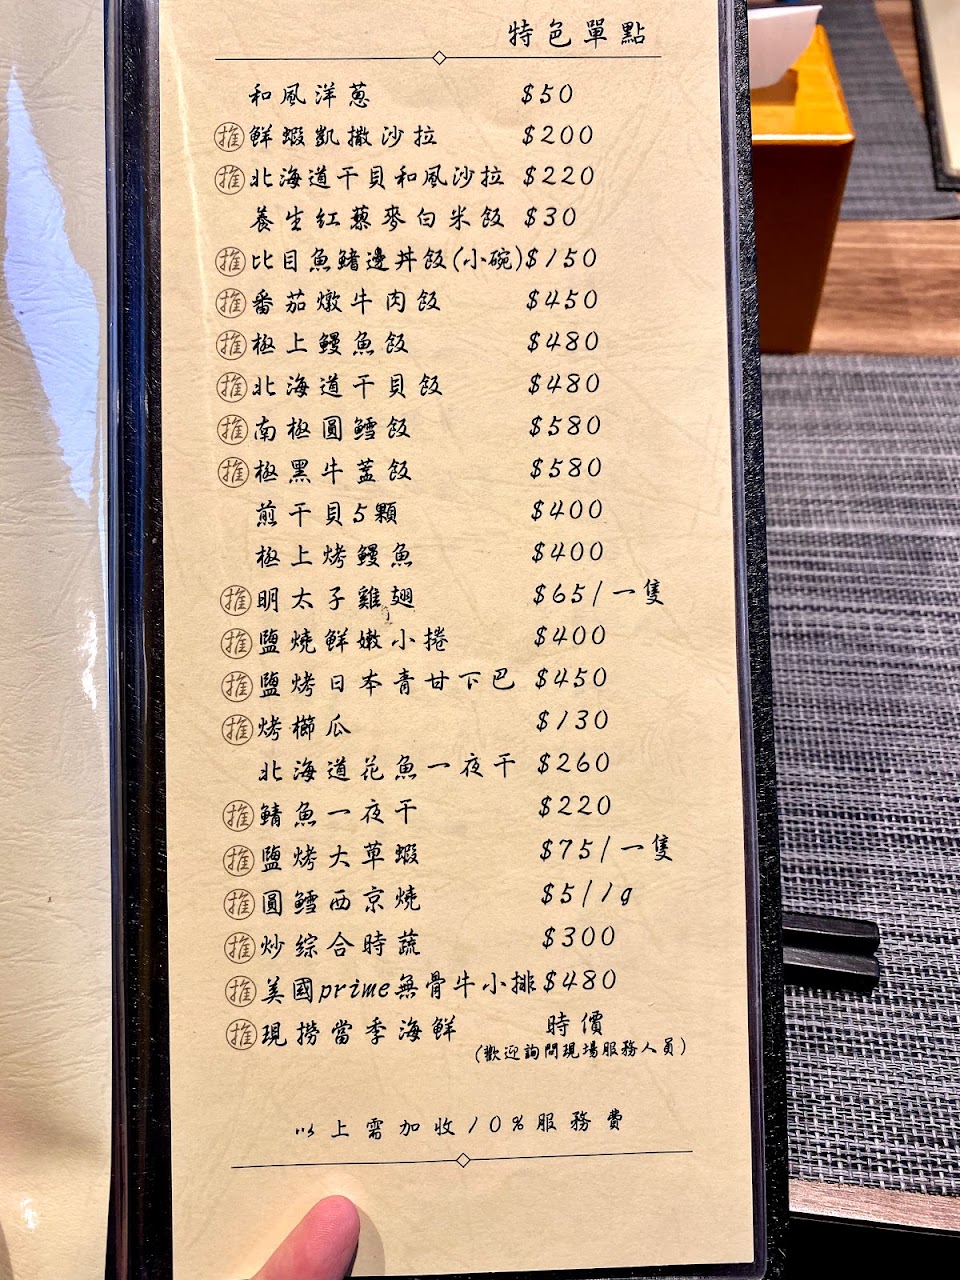 特色單點
和風洋蔥 $50
推 鮮蝦凱撒沙拉 $200
推 北海道干貝和風沙拉 $220
養生紅藜麥白米飯 $30
推 比目魚鰭邊丼飯(小碗) $150
推 番茄燉牛肉飯 $450
推 極上鰻魚飯 $480
推 北海道干貝飯 $480
推 南極圓鱈飯 $580
推 極黑牛蓋飯 $580
煎干貝5顆 $400
極上烤鰻魚 $400
推 明太子雞翅 $65/一隻
推 鹽燒鮮嫩小捲 $400
推 鹽烤日本青甘下巴 $450
推 烤櫛瓜 $130
北海道花魚一夜干 $260
推 鯖魚一夜干 $220
推 鹽烤大草蝦 $75/一隻
推 圓鱈西京燒 $5/1g
推 炒綜合時蔬 $300
推 美國prime無骨牛小排 $480
推 現撈當季海鮮 時價
(歡迎詢問現場服務人員)
以上需加收10%服務費